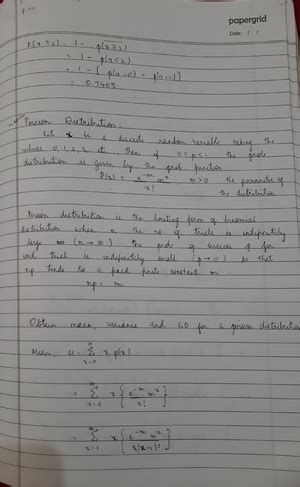 papergrid
Date: / /
p(x ≥ 2) = 1 - p(x ≥ 2)
= 1 - p(x < 2)
= 1 - [ p(x=0) + p(x=1) ]
= 0.7405
Poisson Distribution :
Let x be a discrete random variable taking the
values 0, 1, 2, 3, then if 0 ≤ p ≤ 1 the prob
distribution is given by the prob function :
P(x) = e^-m m^x / x! , m > 0 the parameter of
the distribution
distribution is the limiting form of binomial
distribution when n the no of trials is indefinitely
large (n → ∞) the prob of success p for
trial is indefinitely small (p → 0) so that
np tends to a fixed finite constant m .
np = m
Obtain mean, variance and S.D for a poisson distribution
Mean, μ = ∞ Σ x=0 x p(x)
= ∞ Σ x=0 x { e^-m m^x / x! }
= ∞ Σ x=1 x { e^-m m^x / x(x-1)! }